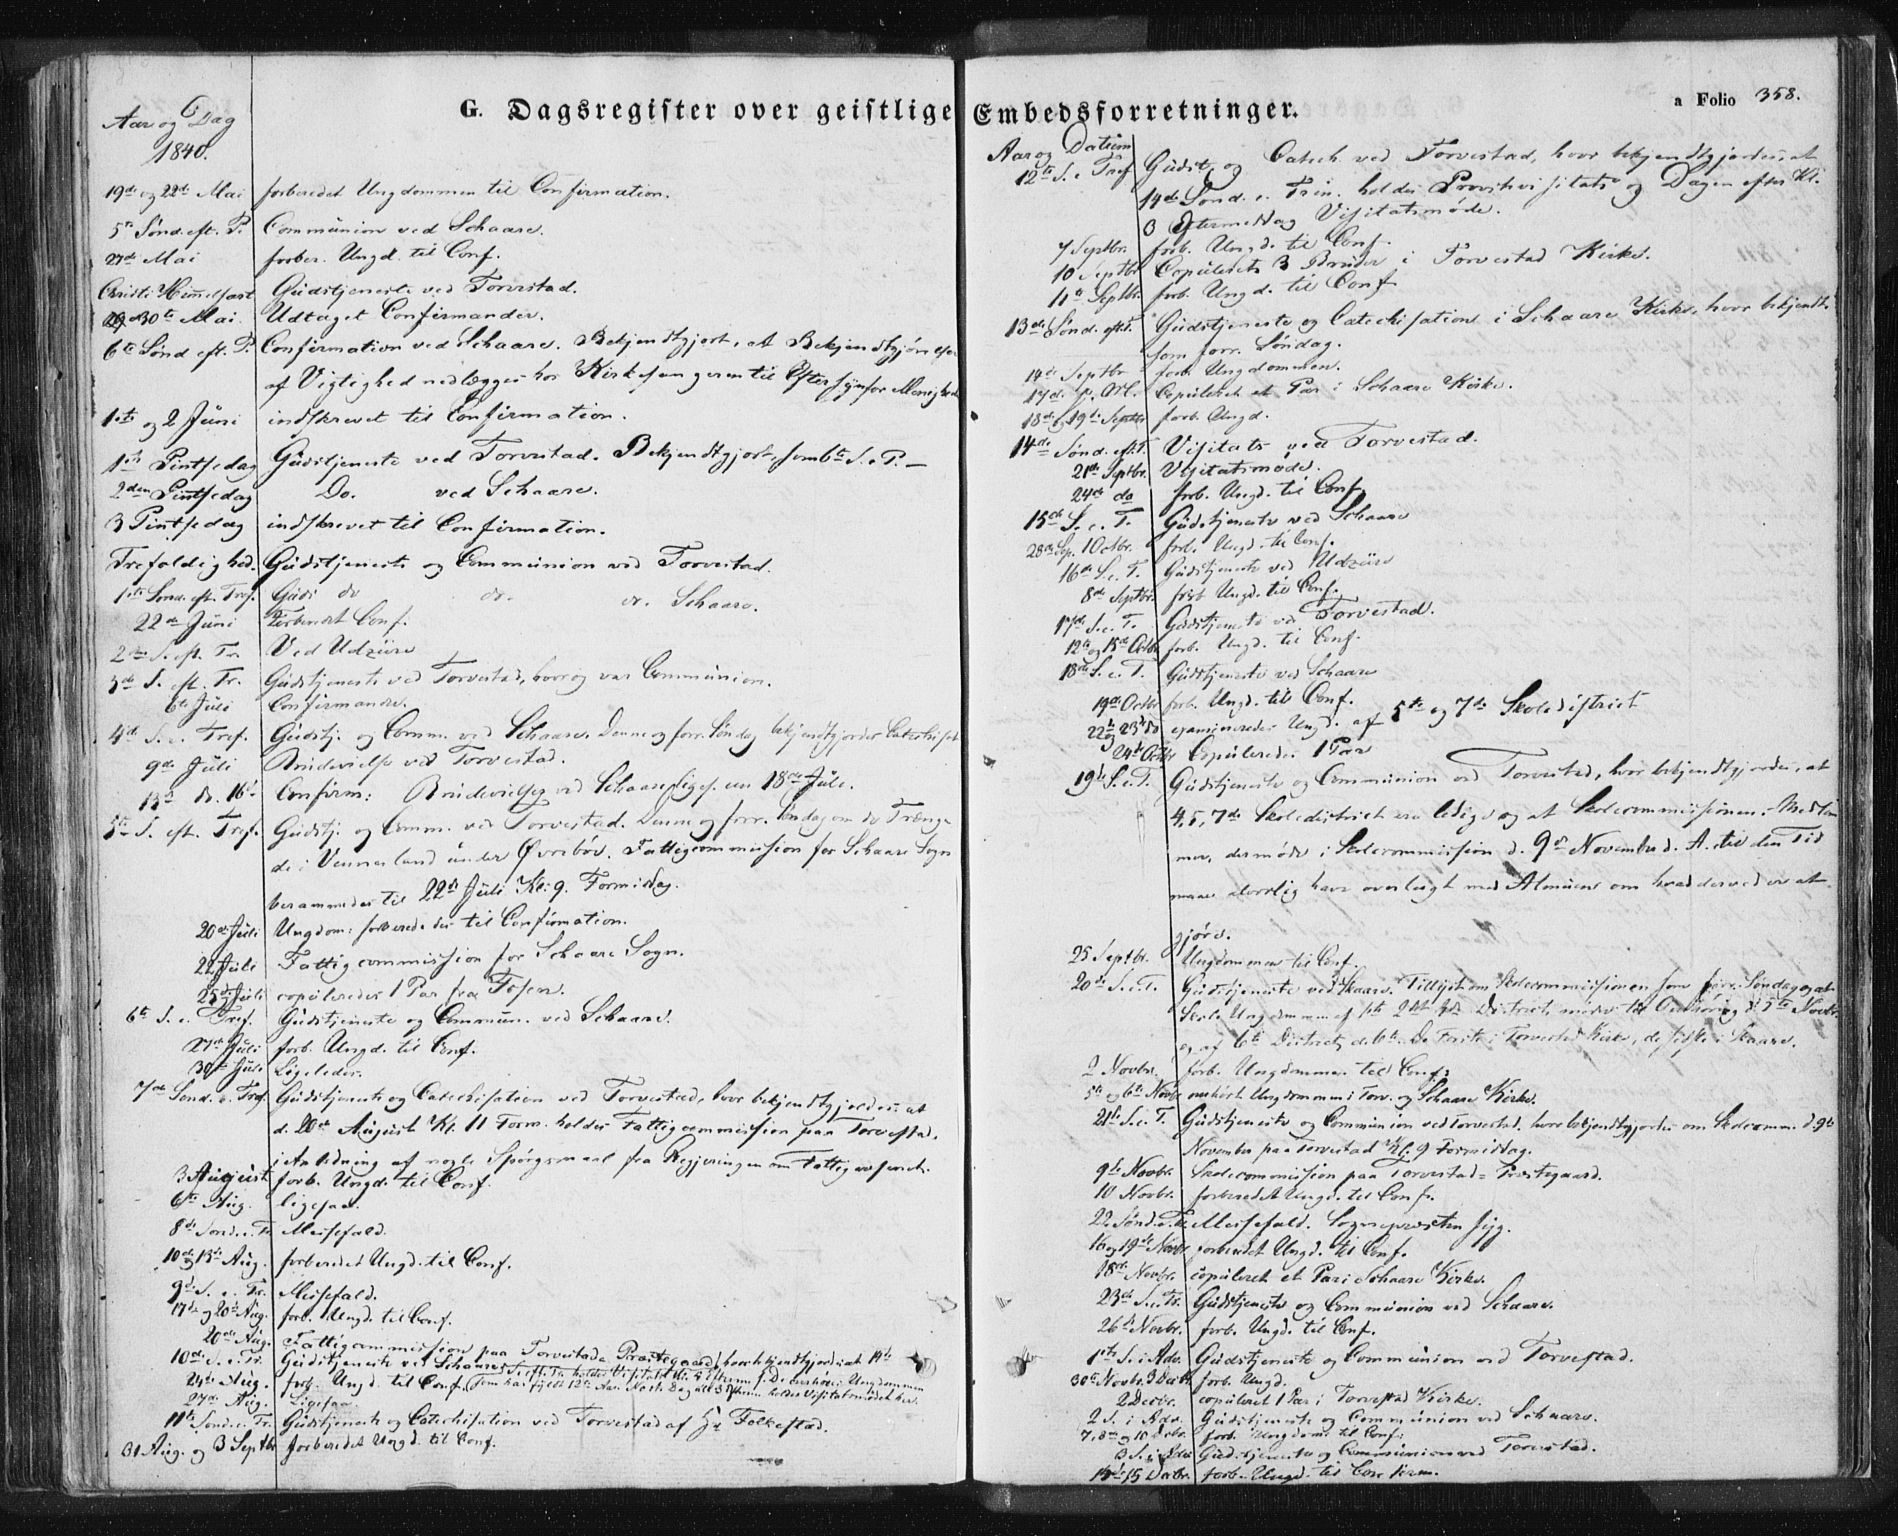 G. Dagsregister over geistlige Embedsforretninger.
a Folio 358.
Aar og Dag
1840.
19de og 22de Mai forberedet Ungdommen til Confirmation.
5te Sønd. eft. P. Communion ved Schaare.
27de Mai forber. Ungd. til Conf.
Christi Himmelfart Gudstjeneste ved Torvestad.
30te Mai. Udtaget Confirmander.
6te Sønd eft. P. Confirmation ved Schaare. Bekjendtgjort, at Bekjendtgjørelser
af Vigtighed nedlægges hos Kirkesangeren til Eftersyn for Menighed
1ste og 2 Juni indskrevet til Confirmation.
1ste Pintsedag Gudstjeneste ved Torvestad. Bekjendtgjort, som 6te S. e. P. –
2den Pintsedag Do. ved Schaare.
3 Pintsedag indskrevet til Confirmation.
Trefoldighed. Gudstjeneste og Communion ved Torvestad.
1ste Sønd. eft. Tref. Guds do do. do. Schaare.
22de Juni Forberedt Conf.
2den S. eft. Tr. Ved Udzüre
3de S. eft. Tr. Gudstjeneste ved Torvestad, hvor og var Communion.
6te Juli Confirmander.
4de S. e. Tref. Gudstj. og Comm. ved Schaare. Denne og forr. Søndag bekjendtgjordes Catechisat
9de Juli Brudevielse ved Torvestad.
13de do. 16de Confirm: Brudevielse ved Schaare, ligel. en 18de Juli.
5te S. eft. Tref. Gudstj. og Comm. ved Torvestad. Denne og forr. Søndag om de Trængen-
de i Vennesland under Øvrebøe. Fattigcommission for Schaare Sogn
berammedes til 22de Juli Kl: 9. Formiddag.
20de Juli Ungdom: forberededes til Confirmation.
22 Juli Fattigcommission for Schaare Sogn.
25de Juli copuleredes 1 Par fra Fosen.
6te S. e. Tref. Gudstjeneste og Commun. ved Schaare.
27de Juli forb. Ungd. til Conf.
30te Juli Ligeledes.
7de Sønd. e. Tref. Gudstjeneste og Catechisation ved Torvestad, hvor bekjendtgjordes, at
d. 20de August Kl. 11 Form. holdes Fattigcommission paa Torvestad,
i Anledning af nogle Spørgsmaal fra Regjeringen om Fattigvæsenet.
3 August forb. Ungd. til Conf.
6te Aug. ligesaa.
8de Sønd. e. Tr Messefald.
10de og 13de Aug. forberedet Ungd. til Conf.
9de S. e. Tr. Messefald.
17de og 20de Aug. forb. Ungd. til Conf.
20de Aug. Fattigcommission paa Torvestads Præstegaard
10de S. e. Tr. Gudstjeneste ved Schaare, hvor bekjendtgjordes at 14de
S. eft. Tr. holdes Visitats
24de Aug. forb. Ungd. til Conf.
27de Aug. Ligesaa.
11te Sønd. e. Tr. Gudstjeneste og Catechisation ved Torvestad af Hr Folkestad.
31 Aug. og 3 Septbr forberedet Ungd. til Conf.
Aar og Datum
12te S. e Tref Gudst. og Catech. ved Torvestad, hvor bekjendtgjordes, at
14de Sønd. e. Trin. holdes Provstevisitats og Dagen efter Kl.
3 Eftermiddag Visitatsmøde.
7 Septbr. forb. Ungd. til Conf.
10 Septbr Copulerets 3 Bruder i Torvestad Kirke.
11te Septbr. forb. Ungd. til Conf
13de Sønd. eft. T. Gudstjeneste og Catechisation i Schaare Kirke, hvor bekjendt.
som forr. Søndag.
14de Septbr forb Ungdommen.
17de Copuleret et Par i Schaare Kirke.
18de og 19de Septbr forb. Ungd.
14de Sønd. eft. T. Visitats ved Torvestad.
21de Septbr. Visitatsmøde.
24de do forb. Ungd. til Conf.
15de S. e. T. Gudstjeneste ved Schaare
28de Sep. 1 Octbr. forb. Ungd. til Conf.
16de S. e. T. Gudstjeneste ved Udzüre
8de Septbr. forb Ungd. til Conf.
17de S. e. T. Gudstjeneste ved Torvestad.
12te og 15de Octbr forb. Ungd. til Conf.
18de S. e. T. Gudstjeneste ved Schaare
19de Octbr forb. Ungd. til Conf.
22de og 23de do examineredes Ungd. af 5te og 7de Skoledistrict
24de Octbr Copuleredes 1 Par
19de S. e. T. Gudstjeneste og Communion ved Torvestad, hvor bekjendtgjordes, at
4, 5, 7de Skoledistrict ere ledige og at Skolecommissionens Medlem
mer, der møde i Skolecommission d. 9de November d. A. til den Tid
maae alvorlig have overlagt med Almuen om hvad derved er at
gjøre.
25 Septbr. Ungdommen til Conf.
20de S. e. T. Gudstjeneste ved Skaare. Tillyst om Skolecommissionen som forr. Søndag og at
Skole Ungdommen af 1ste 2det 3de District møder til Overhøring d. 5te Novbr.
og af 6te District d. 6te. De første i Torvestad Kirke, de sidste i Skaare.
2 Novbr. forb. Ungdommen til Conf:
5te og 6te Novbr overhørt Ungdommen i Torv. og Schaare Kirke.
21de S. e. T. Gudstjeneste og Communion ved Torvestad, hvor bekjendtgjordes om Skolecomm. d 9de
November paa Torvestad Kl. 9 Formiddag.
9de Novbr. Skolecommission paa Torvestad-Præstegaard.
10 Novbr. forberedet Ungd. til Conf.
22. Sønd. e. Tr. Messefald. Sognepresten syg.
16 og 19de Novbr forberedet Ungd. til Conf.
18de Novbr. copuleret et Par i Schaare Kirke.
23de S. e. Tr. Gudstjeneste og Communion ved Schaare.
26de Novbr. forb. Ungd. til Conf.
1ste S. i Adv. Gudstjeneste og Communion ved Torvestad.
30te Novbr. 3 Decbr forb. Ungd.
2 Decbr. copuleret 1 Par i Torvestad Kirke.
2 S. i Adv. Gudstjeneste og Communion ved Schaare.
7, 8de og 10 Decbr. forb. Ungdom. til Conf:
3 S. i Adv Gudstjeneste og Communion ved Torvestad.
14de 15 Decbr. forb. Ungd. til Confirm.